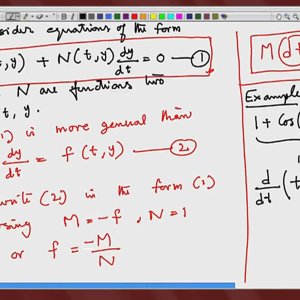 sider equations of the form
t, y) + N(t, y) dy/dt = 0 — ①
N are functions two
t, y.
1) is more general than
dy/dt = f(t, y) — ②
write (2) in the form (1)
using M = -f, N = 1
or f = -M/N
M dt
Example
1 + cos(
d/dt (t